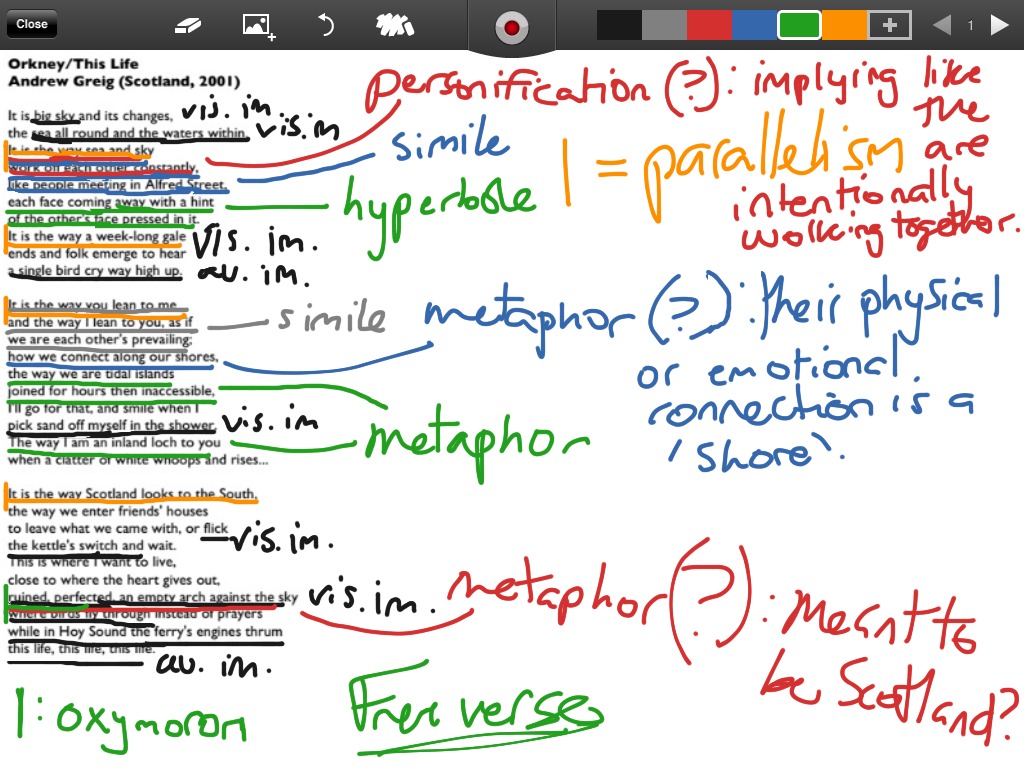 Close
1
Orkney/This Life
Andrew Greig (Scotland, 2001)
It is big sky and its changes,
the sea all round and the waters within.
It is the way sea and sky
work off each other constantly,
like people meeting in Alfred Street,
each face coming away with a hint
of the other's face pressed in it.
It is the way a week-long gale
ends and folk emerge to hear
a single bird cry way high up.
It is the way you lean to me
and the way I lean to you, as if
we are each other's prevailing;
how we connect along our shores,
the way we are tidal islands
joined for hours then inaccessible,
I'll go for that, and smile when I
pick sand off myself in the shower.
The way I am an inland loch to you
when a clatter of white whoops and rises...
It is the way Scotland looks to the South,
the way we enter friends' houses
to leave what we came with, or flick
the kettle's switch and wait.
This is where I want to live,
close to where the heart gives out,
ruined, perfected, an empty arch against the sky
where birds fly through instead of prayers
while in Hoy Sound the ferry's engines thrum
this life, this life, this life.
vis. im.
vis.im
personification (?): implying like
the
are
intentionally
working together.
simile
| = parallelism
hyperbole
vis. im.
au. im.
simile
metaphor (?): their physical
or emotional
connection is a
'shore'.
vis. im
metaphor
vis. im.
vis. im.
metaphor (?): Meant to
be Scotland?
au. im.
|: oxymoron
Free verse